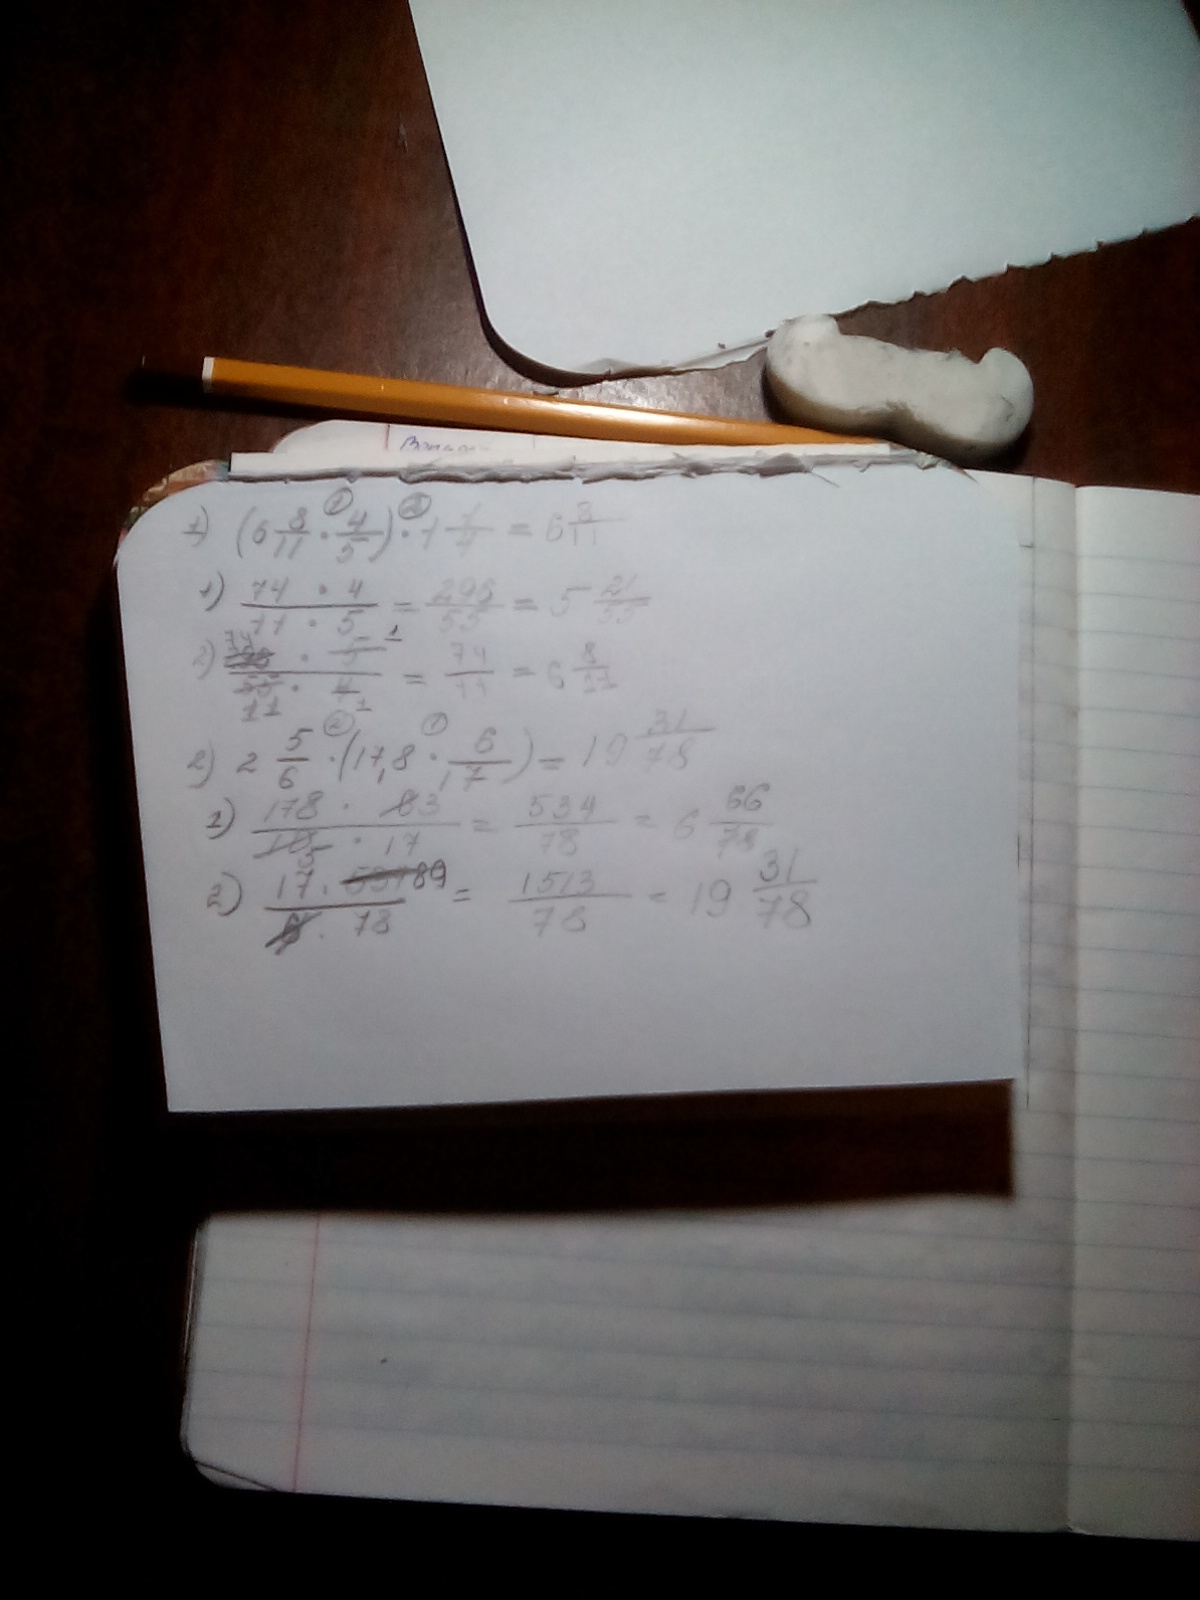 1) (6 8/11 · 4/5) · 1 1/4 = 6 8/11
1) 74 · 4 / 11 · 5 = 296/55 = 5 21/55
2) 74 · 5 1 / 55 11 · 4 1 = 74/11 = 6 8/11
2) 2 5/6 · (17,8 · 6/17) = 19 31/78
1) 178 · 6 3 / 10 5 · 17 = 534/78 = 6 66/78
2) 17 · 534 89 / 6 · 78 = 1513/78 = 19 31/78